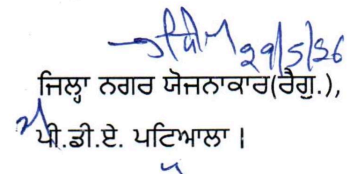 29/5/26
ਜਿਲ੍ਹਾ ਨਗਰ ਯੋਜਨਾਕਾਰ(ਰੈਗੂ.),
ਪੀ.ਡੀ.ਏ. ਪਟਿਆਲਾ।